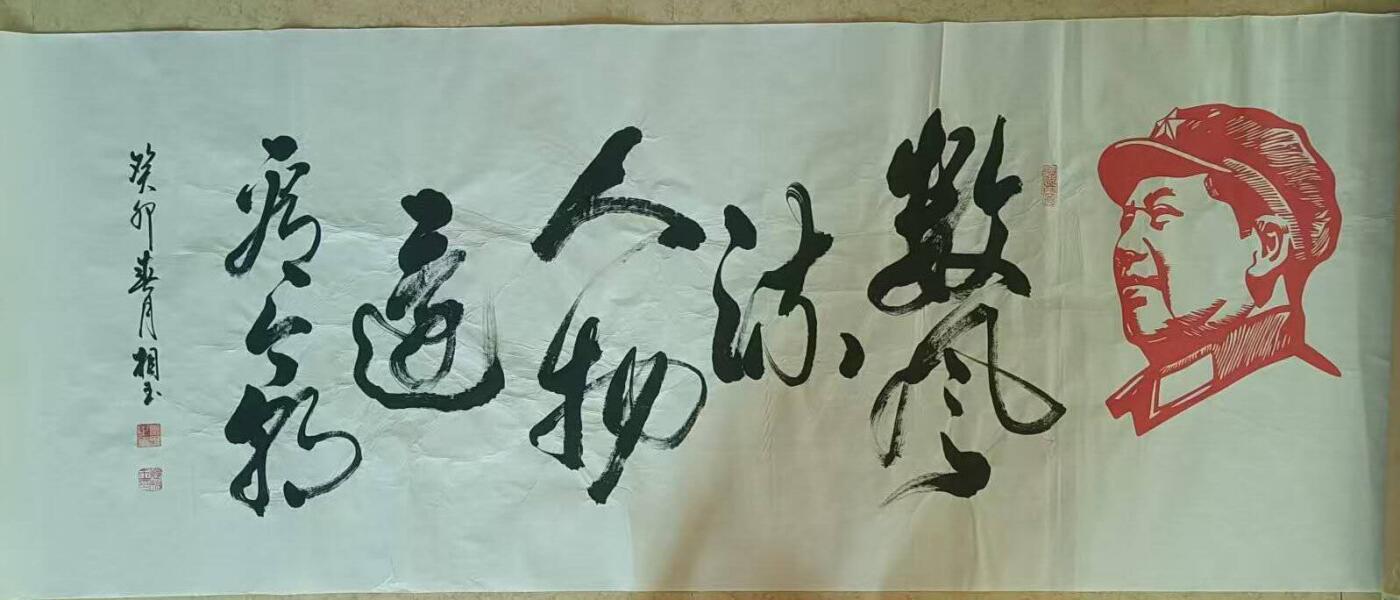 数风
流
人物
还
看今朝
癸卯春月相玉